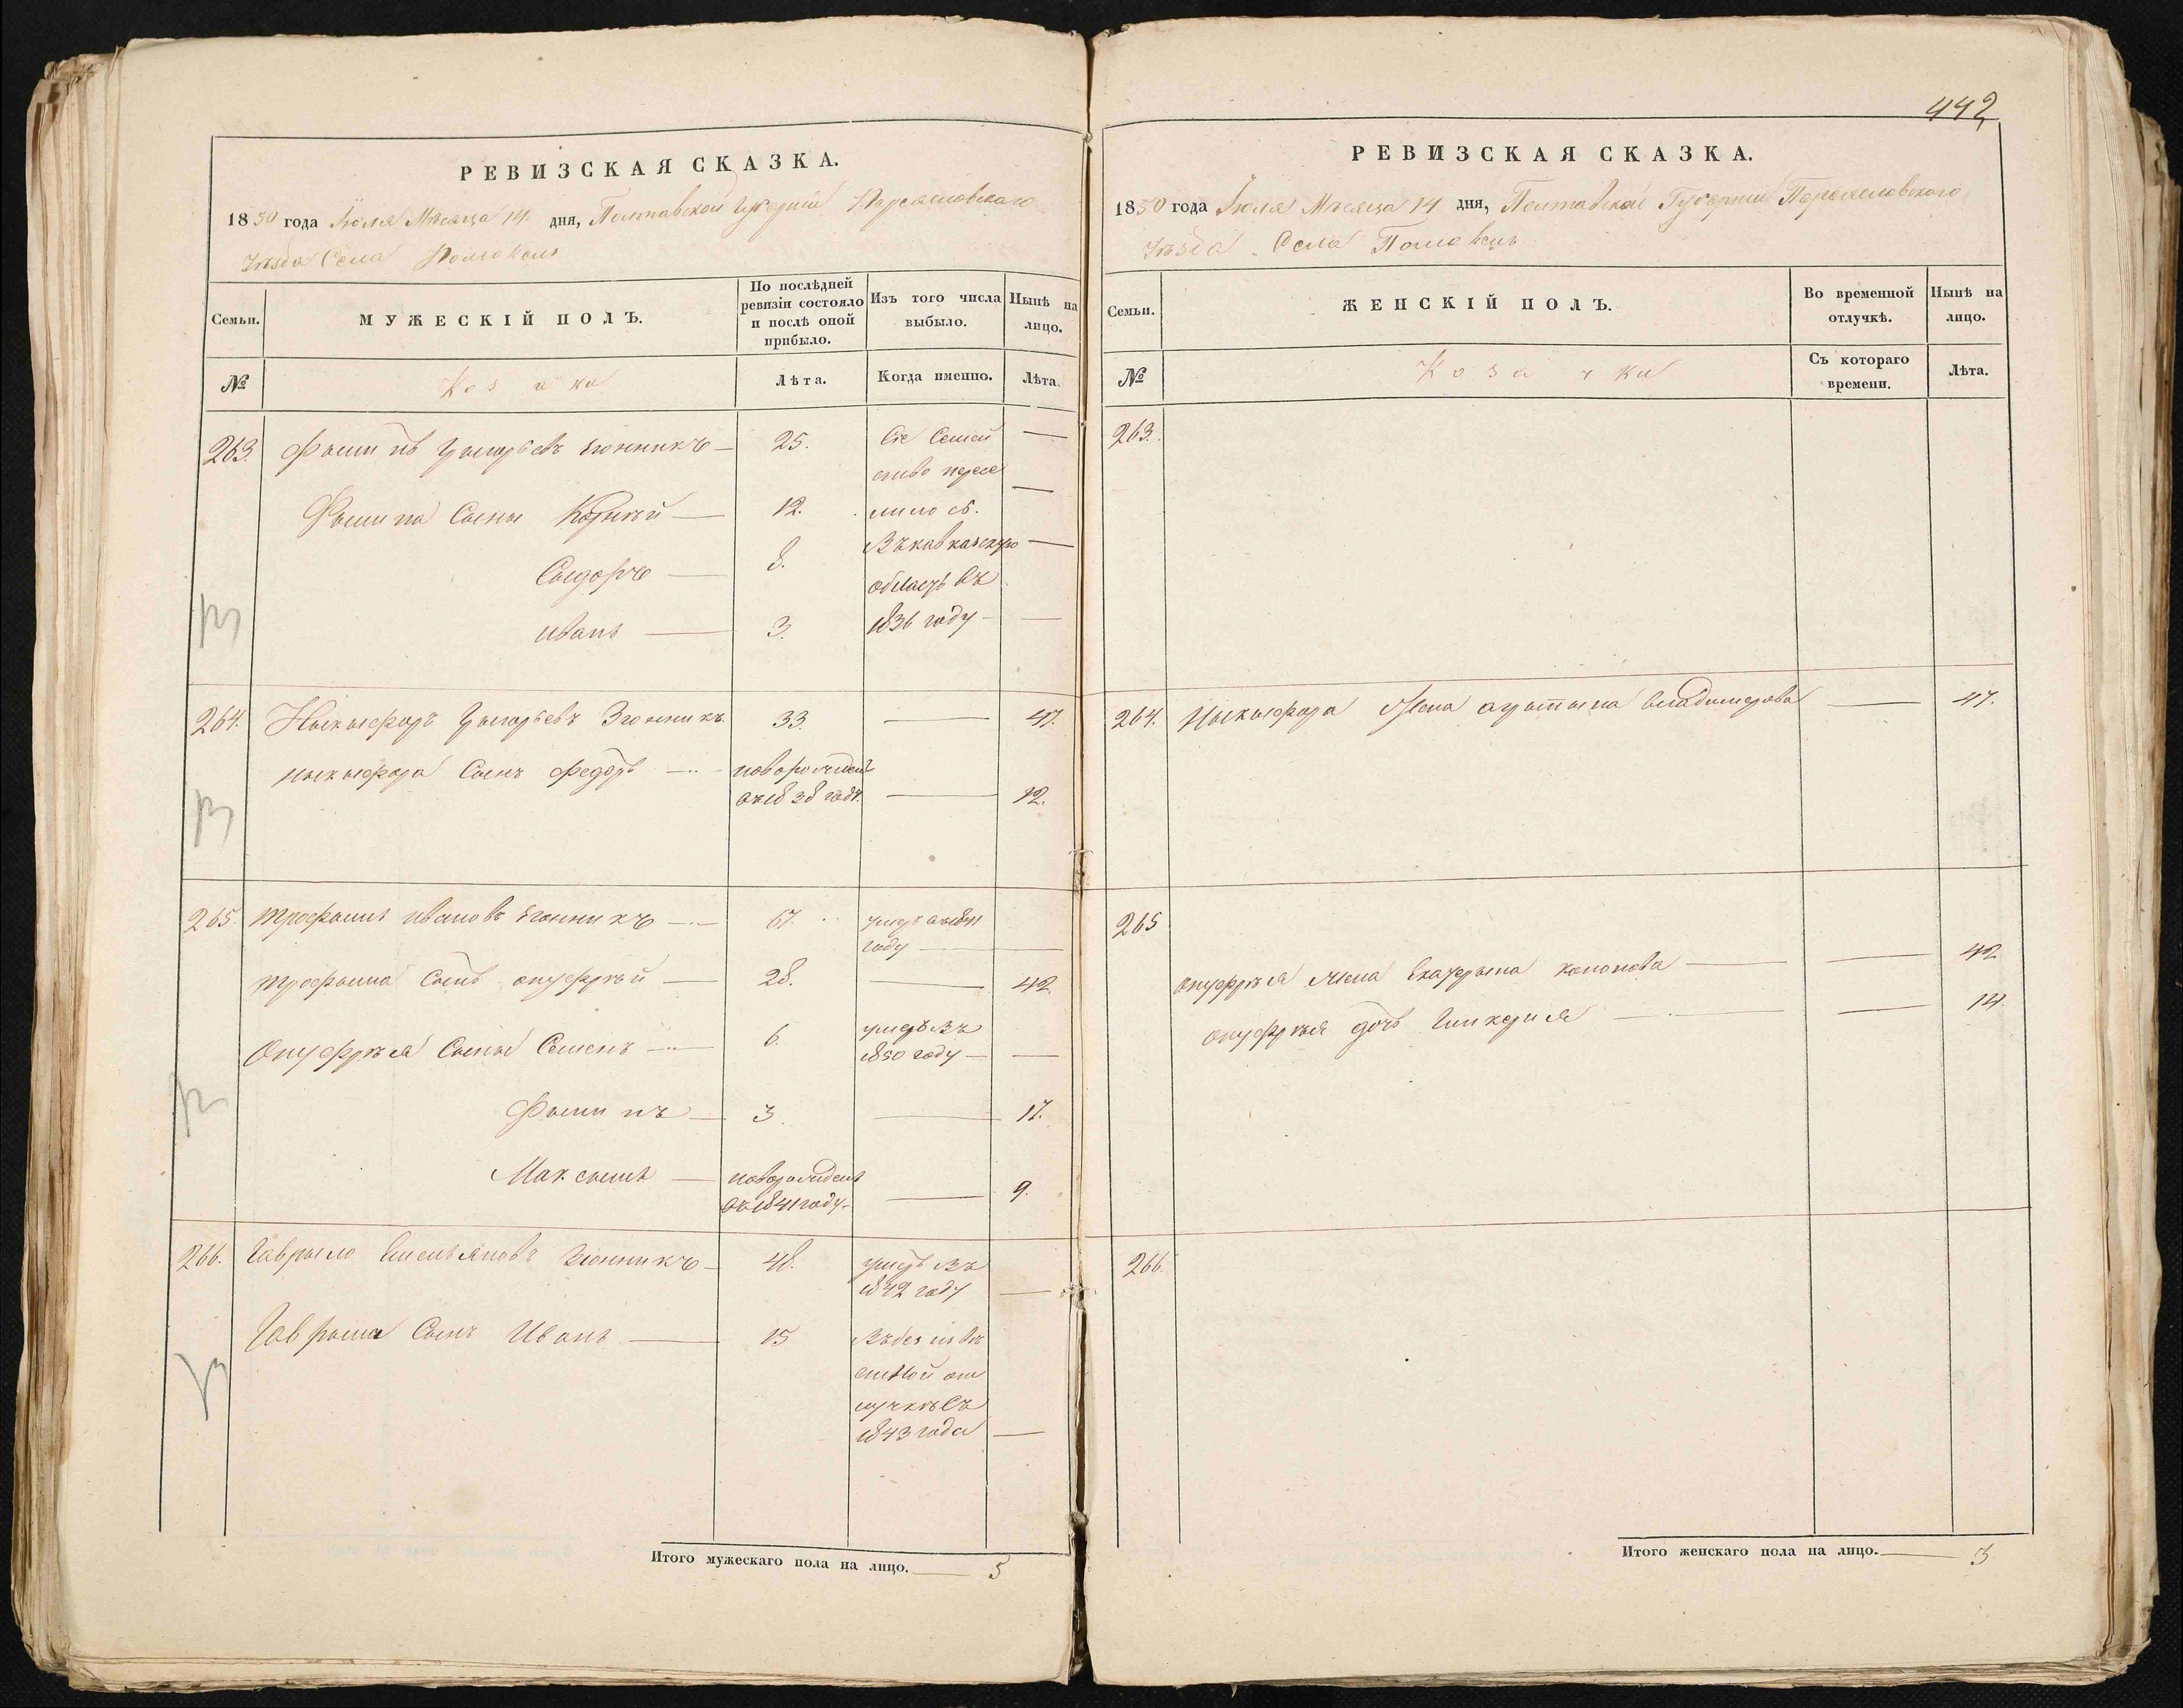 442
РЕВИЗСКАЯ СКАЗКА.
1850 года Іюля Мѣсяца 14 дня, Полтавской Губерніи Переясловского
Уѣзда Села Помокель
Семьи.
МУЖЕСКІЙ ПОЛЪ.
По послѣдней ревизіи состояло и послѣ оной прибыло.
Изъ того числа выбыло.
Нынѣ на лицо.
№
Козаки
Лѣта.
Когда именно.
Лѣта.
263. Филипъ Григорьевъ Зюнникъ — 25. Сіе Семей —
ство пересе
Филипа Сыны Корнѣй — 12. лилось. —
Въ кавказскую —
Сыдоръ — 8. область въ
иванъ — 3. 1836 году — —
264. Ныкыфоръ Григорьевъ Зюнникъ 33. — 47.
ныкыфора Сынъ федоръ — новорожденъ
въ 1838 году. — 12.
265. трофымъ ивановъ Зюнникъ — 67. умеръ въ
году — —
трофыма Сынъ онуфрѣй — 28. — 42.
Онуфрѣя Сыны Семенъ — 6. умеръ въ
1850 году — —
Филипъ — 3. — 17.
Максымъ — новорожденъ
въ 1841 году — — 9.
266. Гаврыло Емельяновъ Зюнникъ — 48. умеръ въ
1842 году —
Гаврыла Сынъ Иванъ — 15 Въ безъизвѣ
стной от
лучкѣ Съ
1843 года —
Итого мужескаго пола на лицо. — 5
РЕВИЗСКАЯ СКАЗКА.
1850 года Іюля Мѣсяца 14 дня, Полтавской Губерніи Переясловского
Уѣзда Села
Семьи.
ЖЕНСКІЙ ПОЛЪ.
Во временной отлучкѣ.
Нынѣ на лицо.
№
Козачки
Съ котораго времени.
Лѣта.
263.
264. Ныкыфора Жена владимерова — 47.
265
онуфрѣя жена Екатерына кононова — — 42
онуфрѣя дочь Гликерія — — 14.
266.
Итого женскаго пола на лицо. — 3